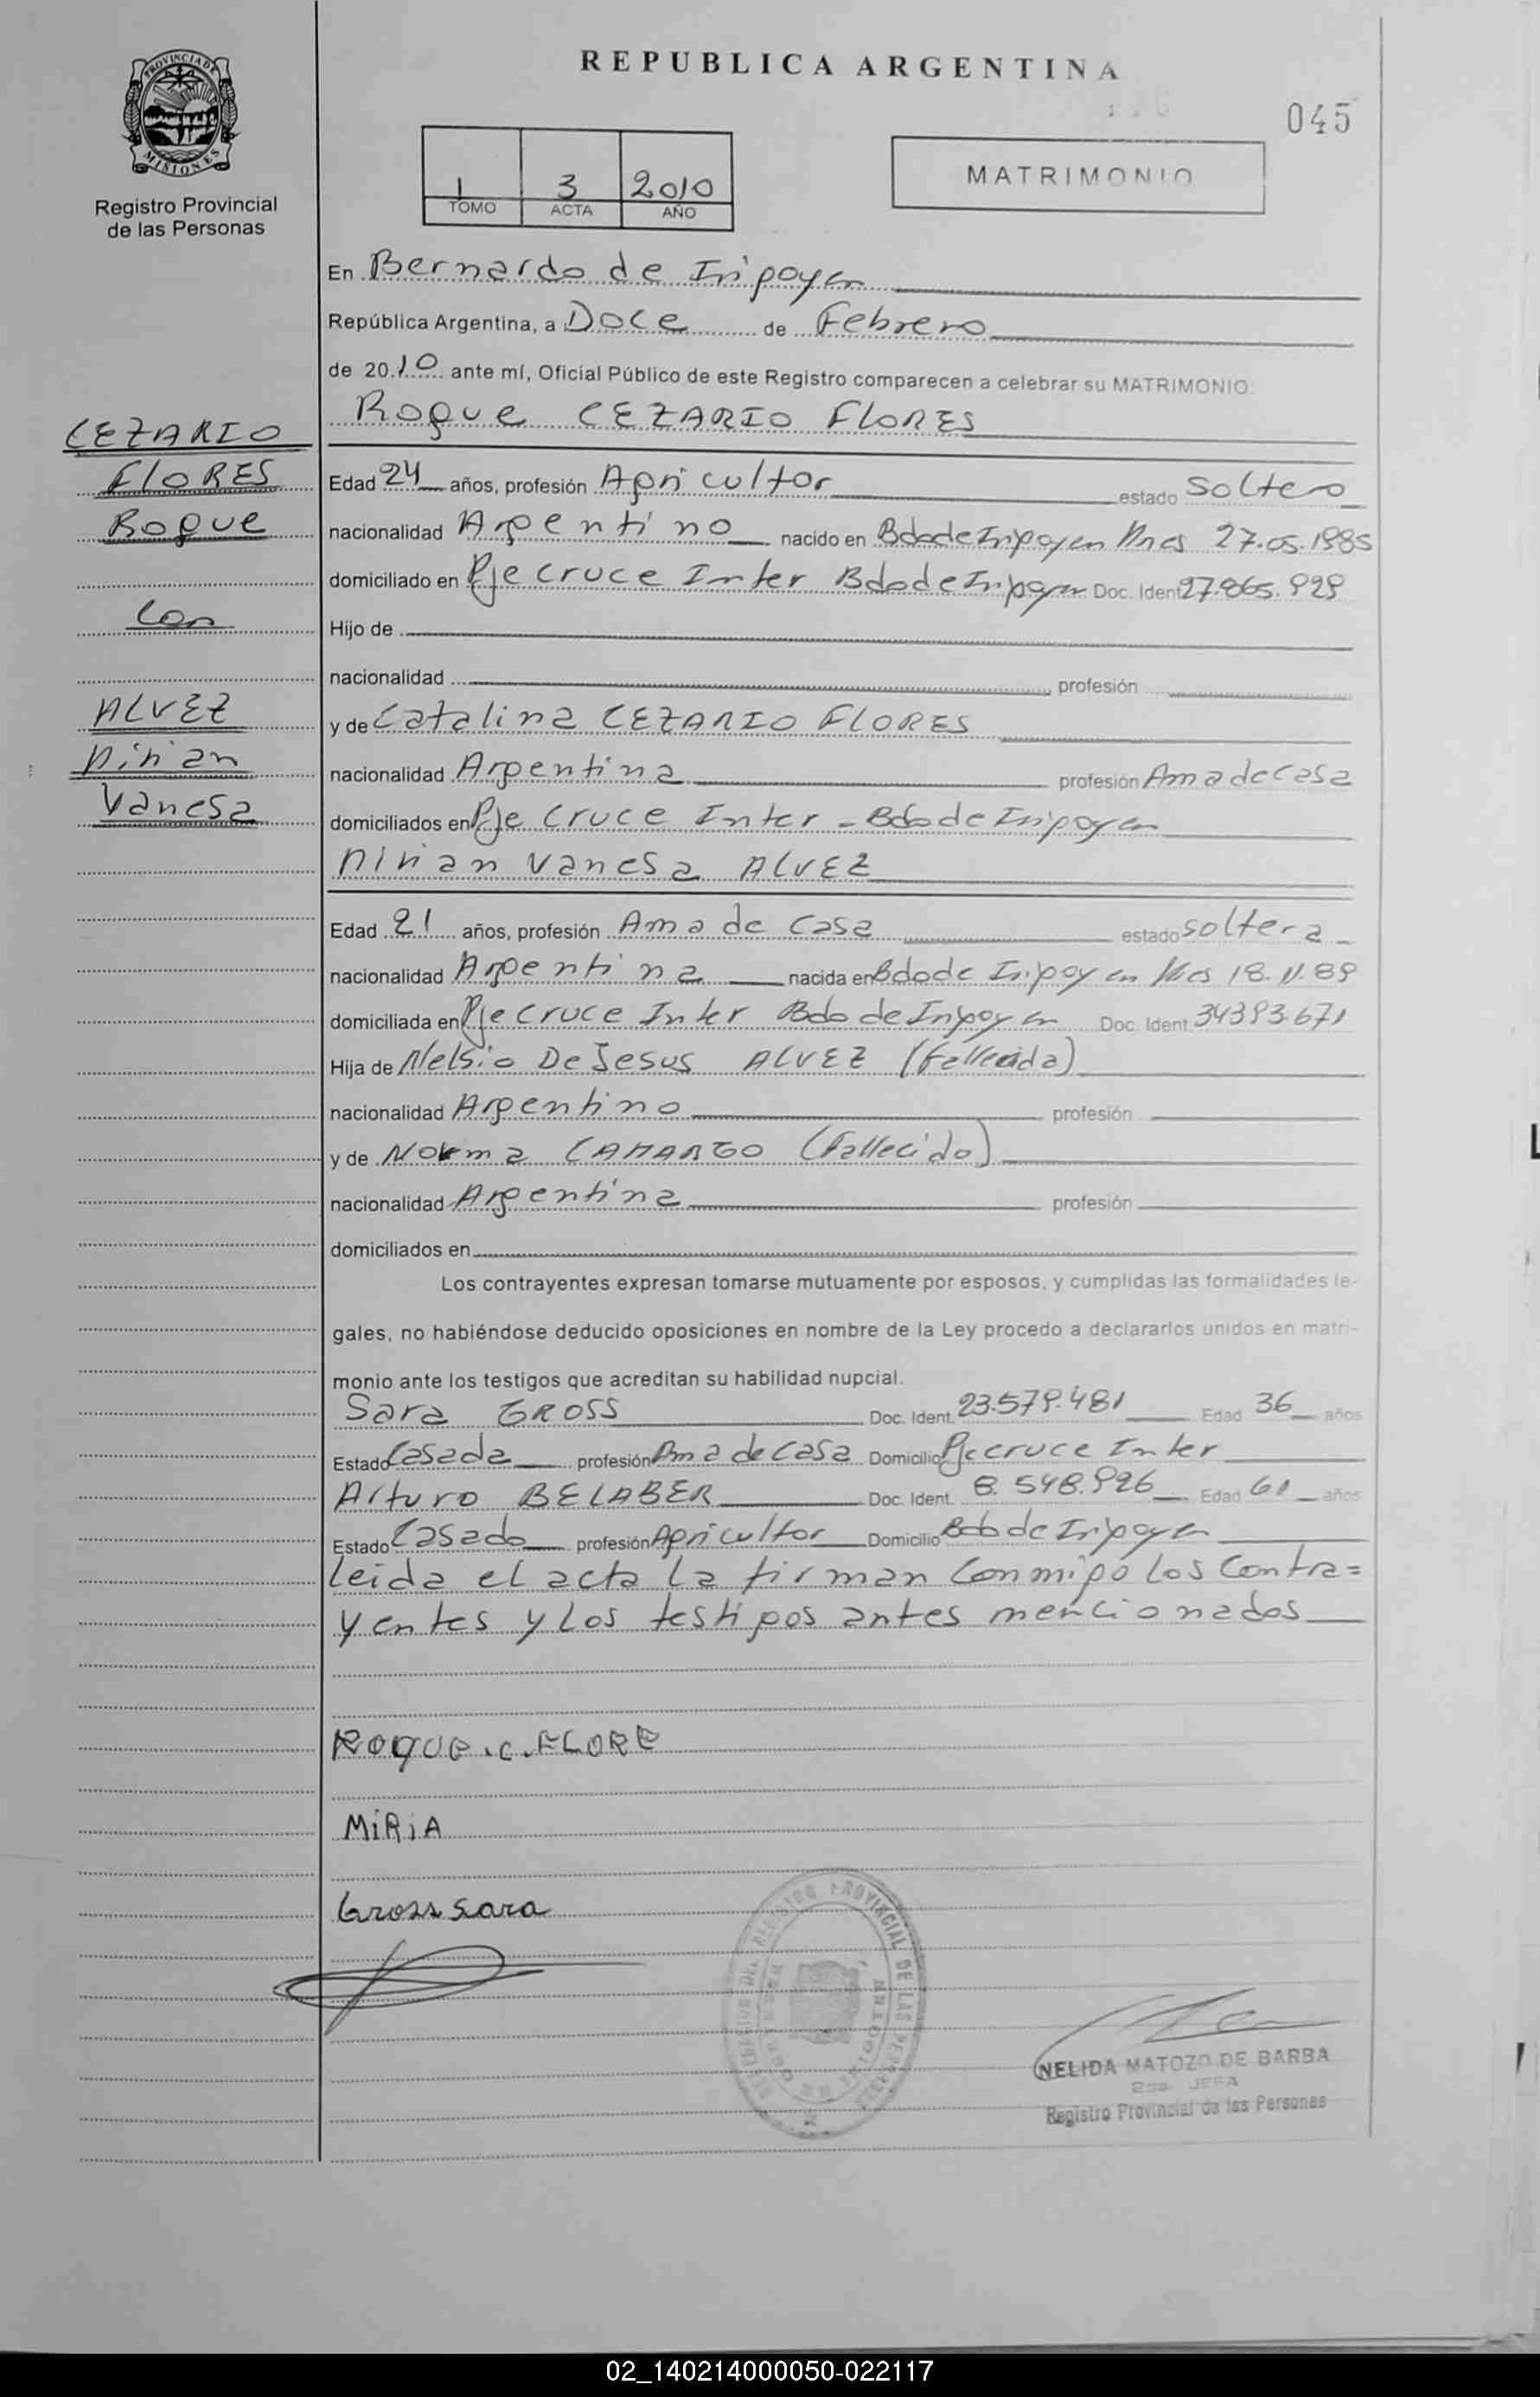 REPUBLICA ARGENTINA
045
PROVINCIA DE MISIONES
Registro Provincial
de las Personas
MATRIMONIO
1 3 2010
TOMO ACTA AÑO
En Bernardo de Irigoyen
República Argentina, a Doce de Febrero
de 2010 ante mí, Oficial Público de este Registro comparecen a celebrar su MATRIMONIO:
Roque CEZARIO FLORES
CEZARIO
FLORES
Roque
Con
ALVEZ
Mirian
Vanesa
Edad 24 años, profesión Agricultor estado Soltero
nacionalidad Argentino nacido en Bdo de Irigoyen Mnes 27.05.1985
domiciliado en Pje Cruce Inter Bdo de Irigoyen Doc. Ident.
Hijo de
nacionalidad profesión
y de Catalina CEZARIO FLORES
nacionalidad Argentina profesión Ama de Casa
domiciliados en Pje Cruce Inter - Bdo de Irigoyen
Mirian Vanesa ALVEZ
Edad 21 años, profesión Ama de Casa estado Soltera
nacionalidad Argentina nacida en Bdo de Irigoyen Mes 18.11.89
domiciliada en Pje Cruce Inter Bdo de Irigoyen Doc. Ident. 34393.671
Hija de Nelsio De Jesus ALVEZ (Fallecida)
nacionalidad Argentino profesión
y de Norma CAMARGO (Fallecido)
nacionalidad Argentina profesión
domiciliados en
Los contrayentes expresan tomarse mutuamente por esposos, y cumplidas las formalidades le-
gales, no habiéndose deducido oposiciones en nombre de la Ley procedo a declararlos unidos en matri-
monio ante los testigos que acreditan su habilidad nupcial.
Sara GROSS Doc. Ident. 23.579.481 Edad 36 años
Estado Casada profesión Ama de Casa Domicilio Pje Cruce Inter
Arturo BELABER Doc. Ident. 8.548.996 Edad 61 años
Estado Casado profesión Agricultor Domicilio Bdo de Irigoyen
Leida el acta la firman Conmigo los Contra=
yentes y Los testigos antes mencionados
ROQUE.C.FLORE
MiRiA
Gross Sara
REGISTRO PROVINCIAL DE LAS PERSONAS
NELIDA MATOZO DE BARBA
2da. JEFA
Registro Provincial de las Personas
02_140214000050-022117